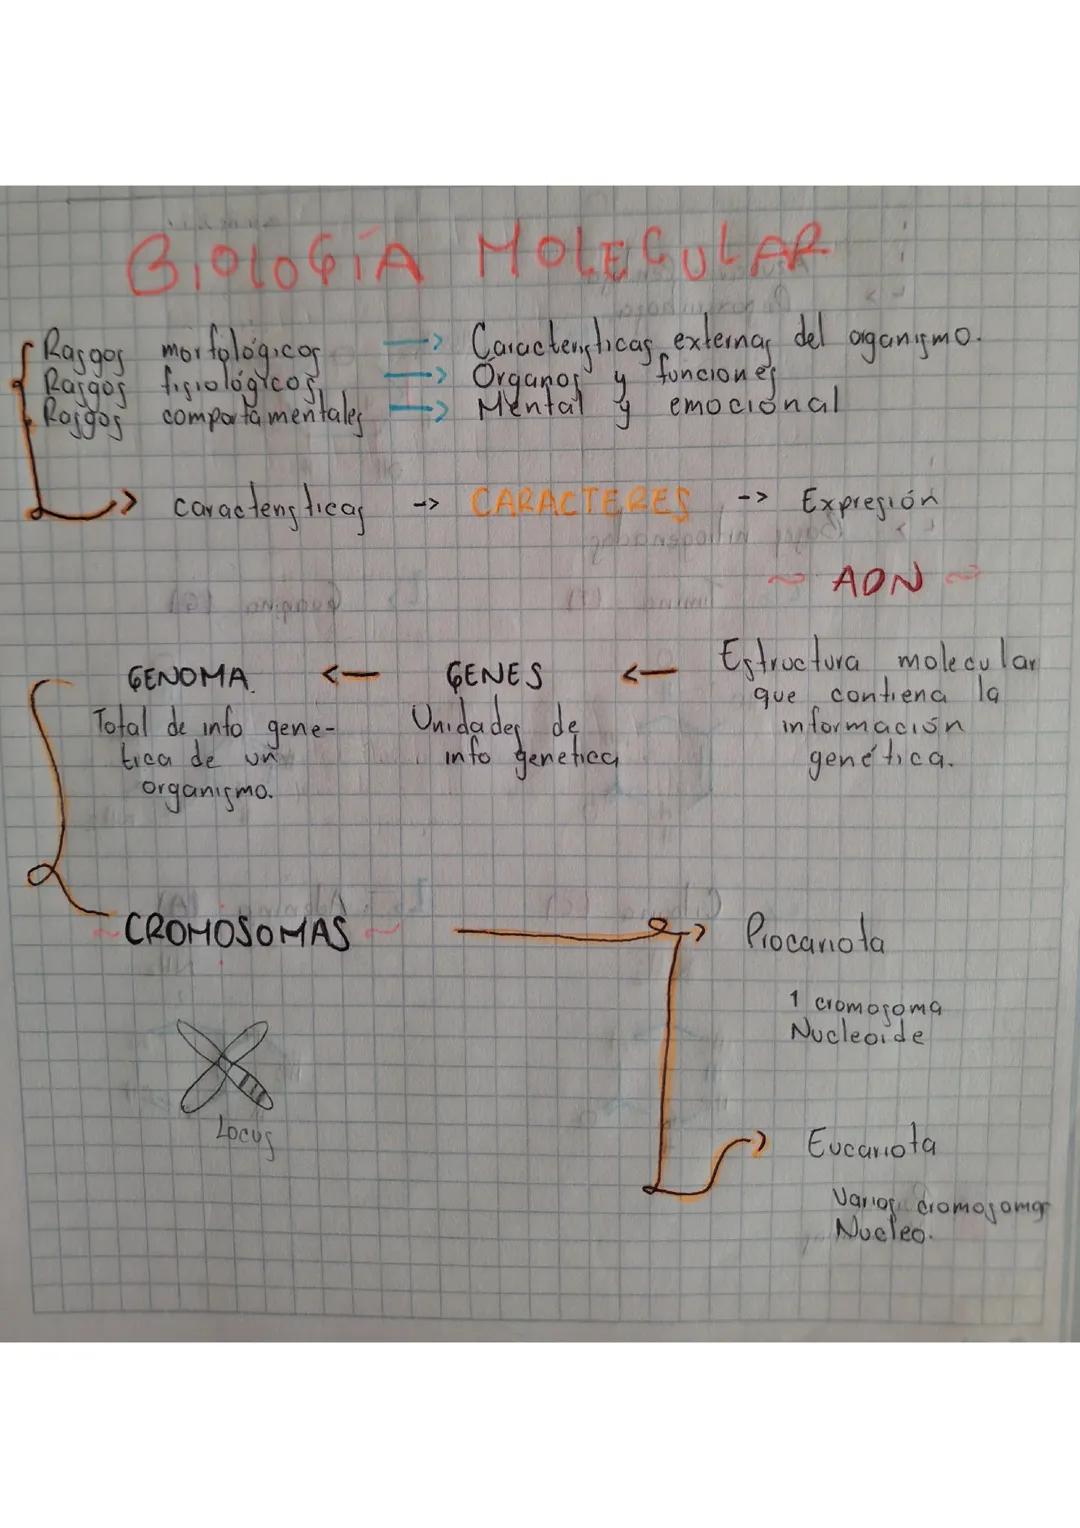 BIOLOGÍA MOLECULAR
Rasgos morfológicos --> Características externas del organismo.
Rasgos fisiológicos --> Órganos y funciones
Rasgos comportamentales --> Mental y emocional
características -> CARACTERES -> Expresión
~ ADN ~
GENOMA. <- GENES <- Estructura molecular
que contiena la
Total de info gene- Unidades de información
tica de un info genetica genética.
organismo.
~ CROMOSOMAS ~ -> Procariota
1 cromosoma
Nucleoide
Locus
-> Eucariota
Varios cromosomas
Núcleo.